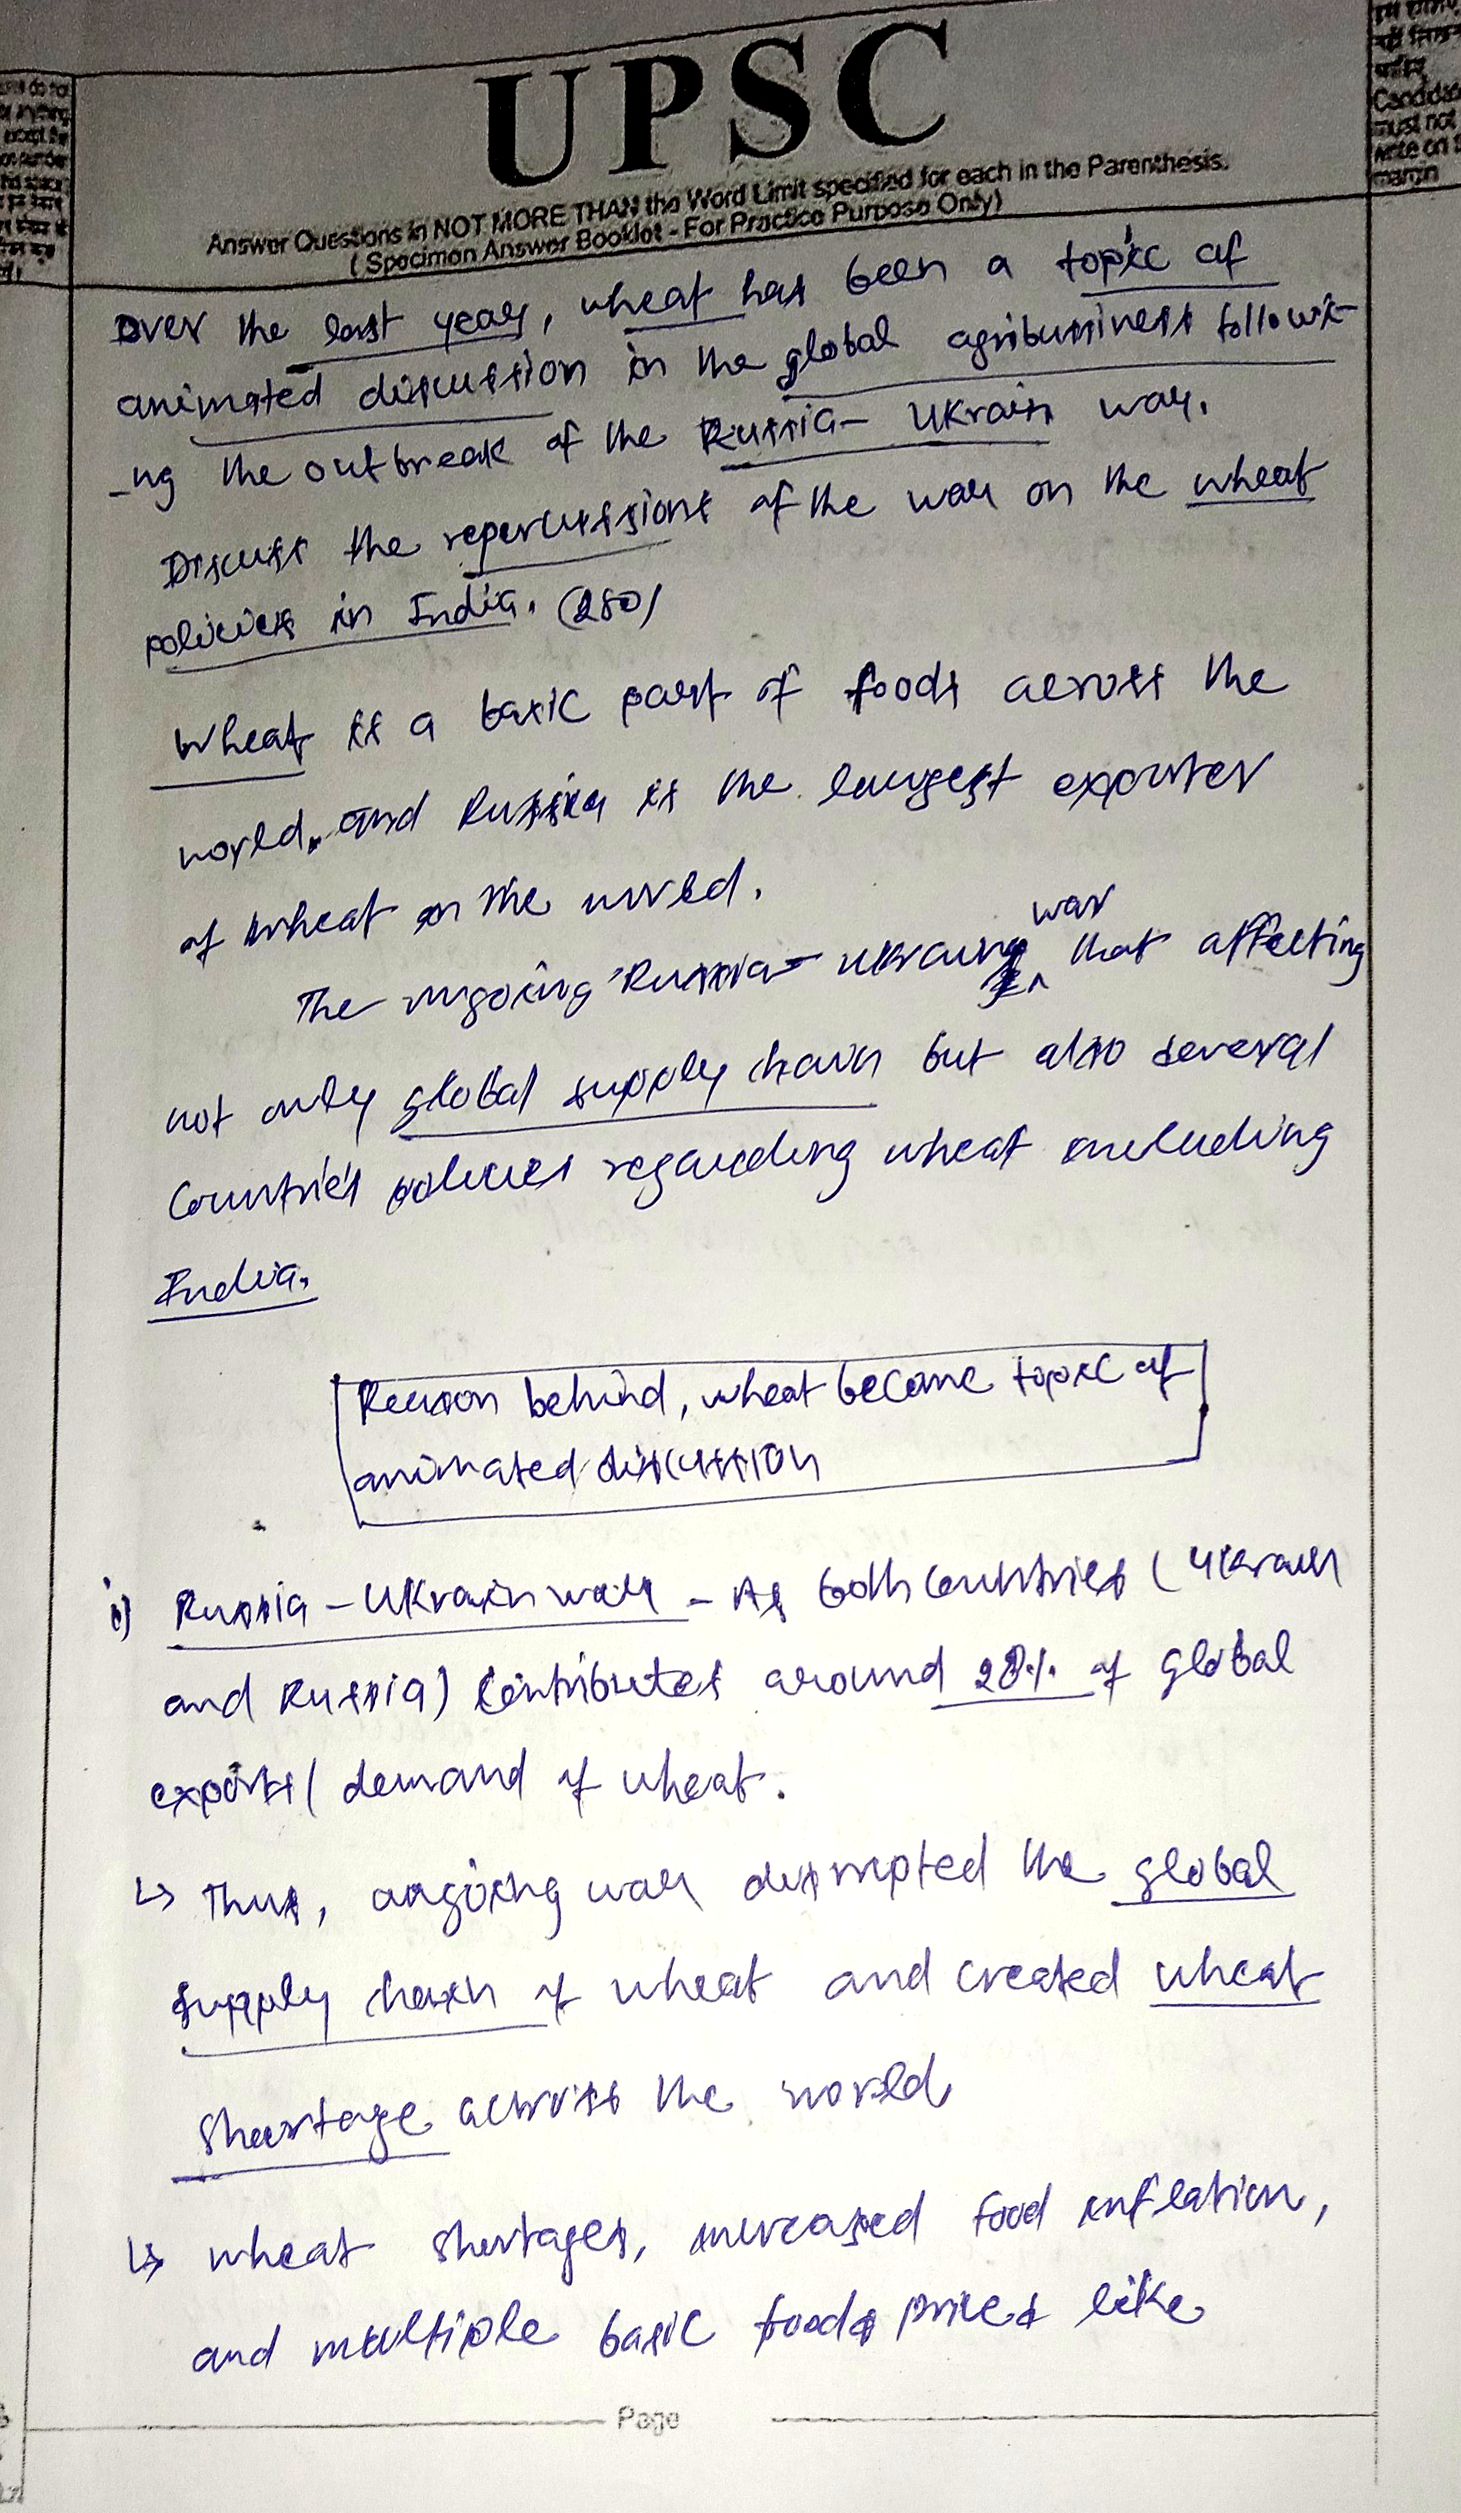 UPSC
Answer Questions in NOT MORE THAN the Word Limit specified for each in the Parenthesis.
( Specimen Answer Booklet - For Practice Purpose Only)
Candidates
must not
write on
margin
Over the last year, wheat has been a topic of
animated discussion in the global agribussiness followi-
-ng the outbreak of the Russia- Ukrain war.
Discuss the repercussions of the war on the wheat
policies in India. (250)
Wheat is a basic part of foods across the
world, and Russia is the largest exporter
of wheat in the world.
war
The ongoing Russia- Ukraine that affecting
not only global supply chain but also several
Countries policies regarding wheat including
India.
Reason behind, wheat become topic of
animated discussion
i) Russia - Ukrain war - As both Countries ( Ukrain
and Russia) Contributes around 28% of global
exports/ demand of wheat.
↳ Thus, ongoing war disrupted the global
supply chain of wheat and created wheat
shortage across the world
↳ wheat shortages, increased food inflation,
and multiple basic foods prices like
Page